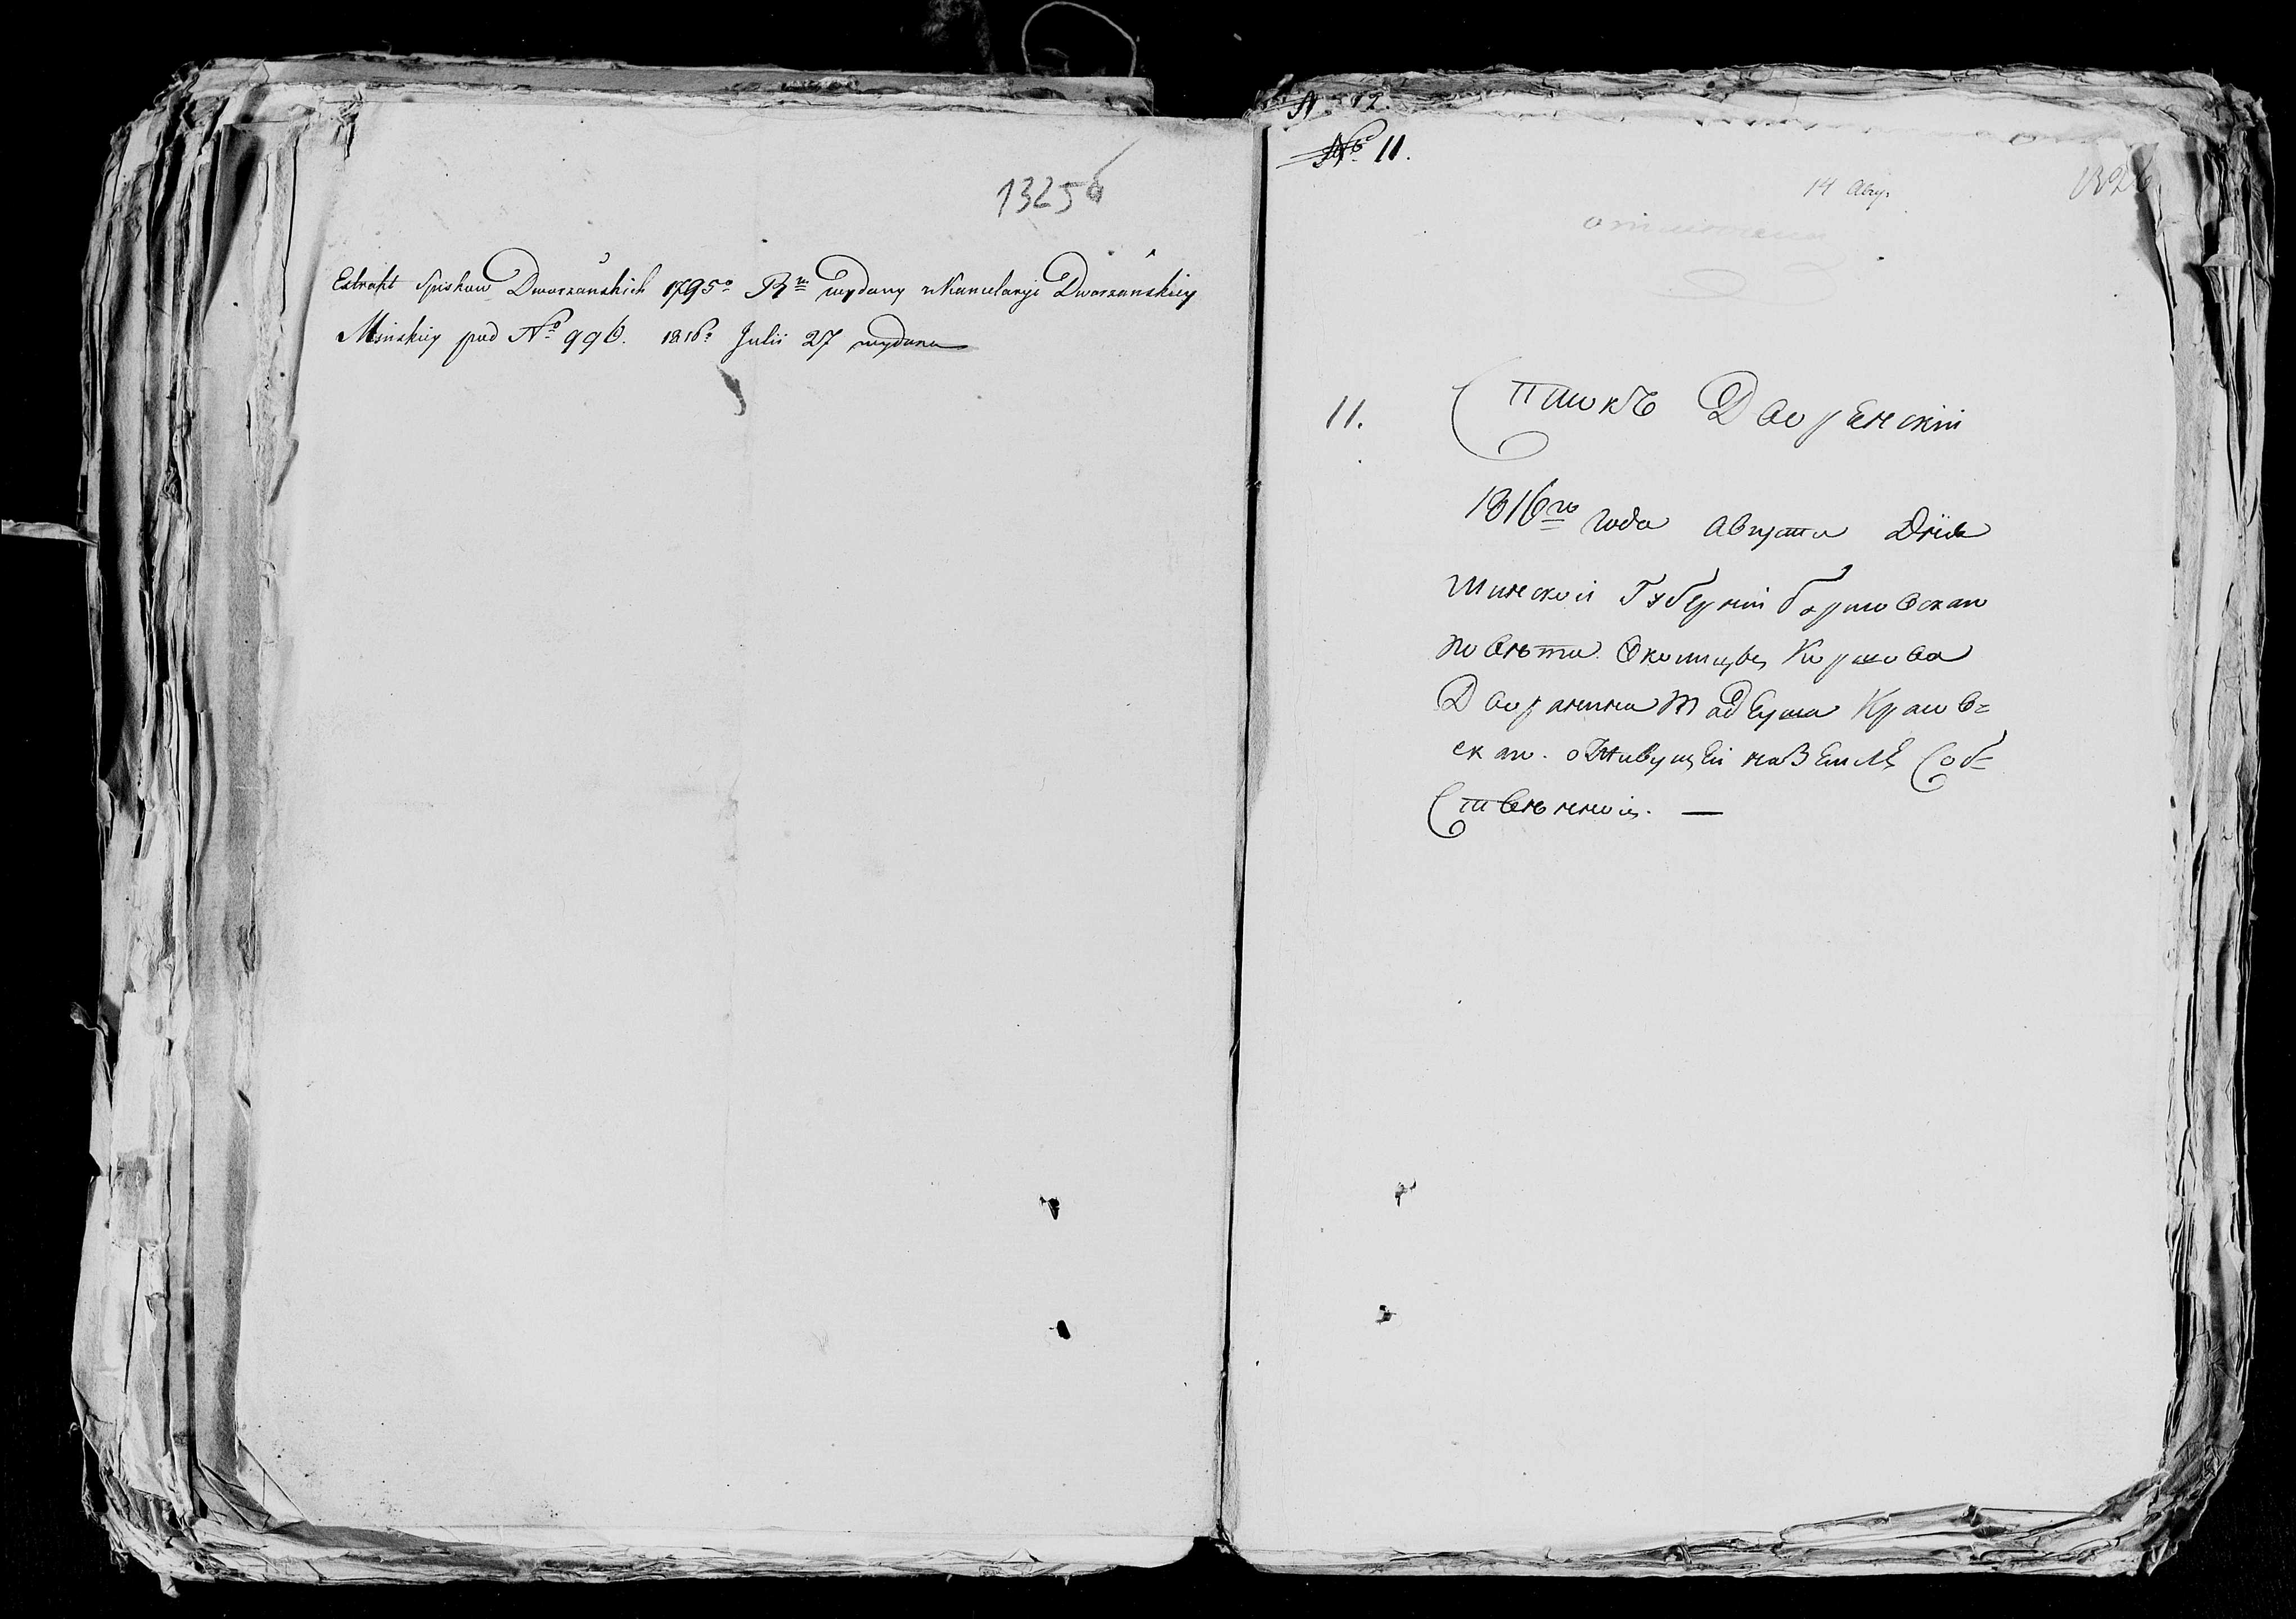 1325б
Extrakt Spiskow Dworzanskich 1795º Rº wydany z Kancelaryi Dworzanskiey
Minskiey pod Nº 996. 1816º Julii 27 wydana
Nº 11.
14 Авгу.
1326
11. Списокъ Дворенскiй
1816го года Августа Дня
Минской Губернiи Борисовскаго
повѣта Околицы
Дворанина Тадеуша Красов=
скаго. оЖивущей на Земле Соб=
ственной. —